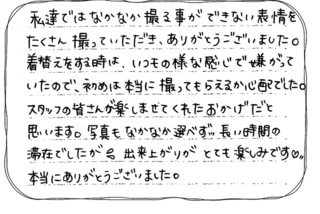 私達ではなかなか撮る事ができない表情を
たくさん撮っていただき、ありがとうございました。
着替えをする時は、いつもの様な感じで嫌がって
いたので、初めは本当に撮ってもらえるか心配でした。
スタッフの皆さんが楽しませてくれたおかげだと
思います。写真もなかなか選べず…長い時間の
滞在でしたが 出来上がりが とても楽しみです♡。
本当にありがとうございました。